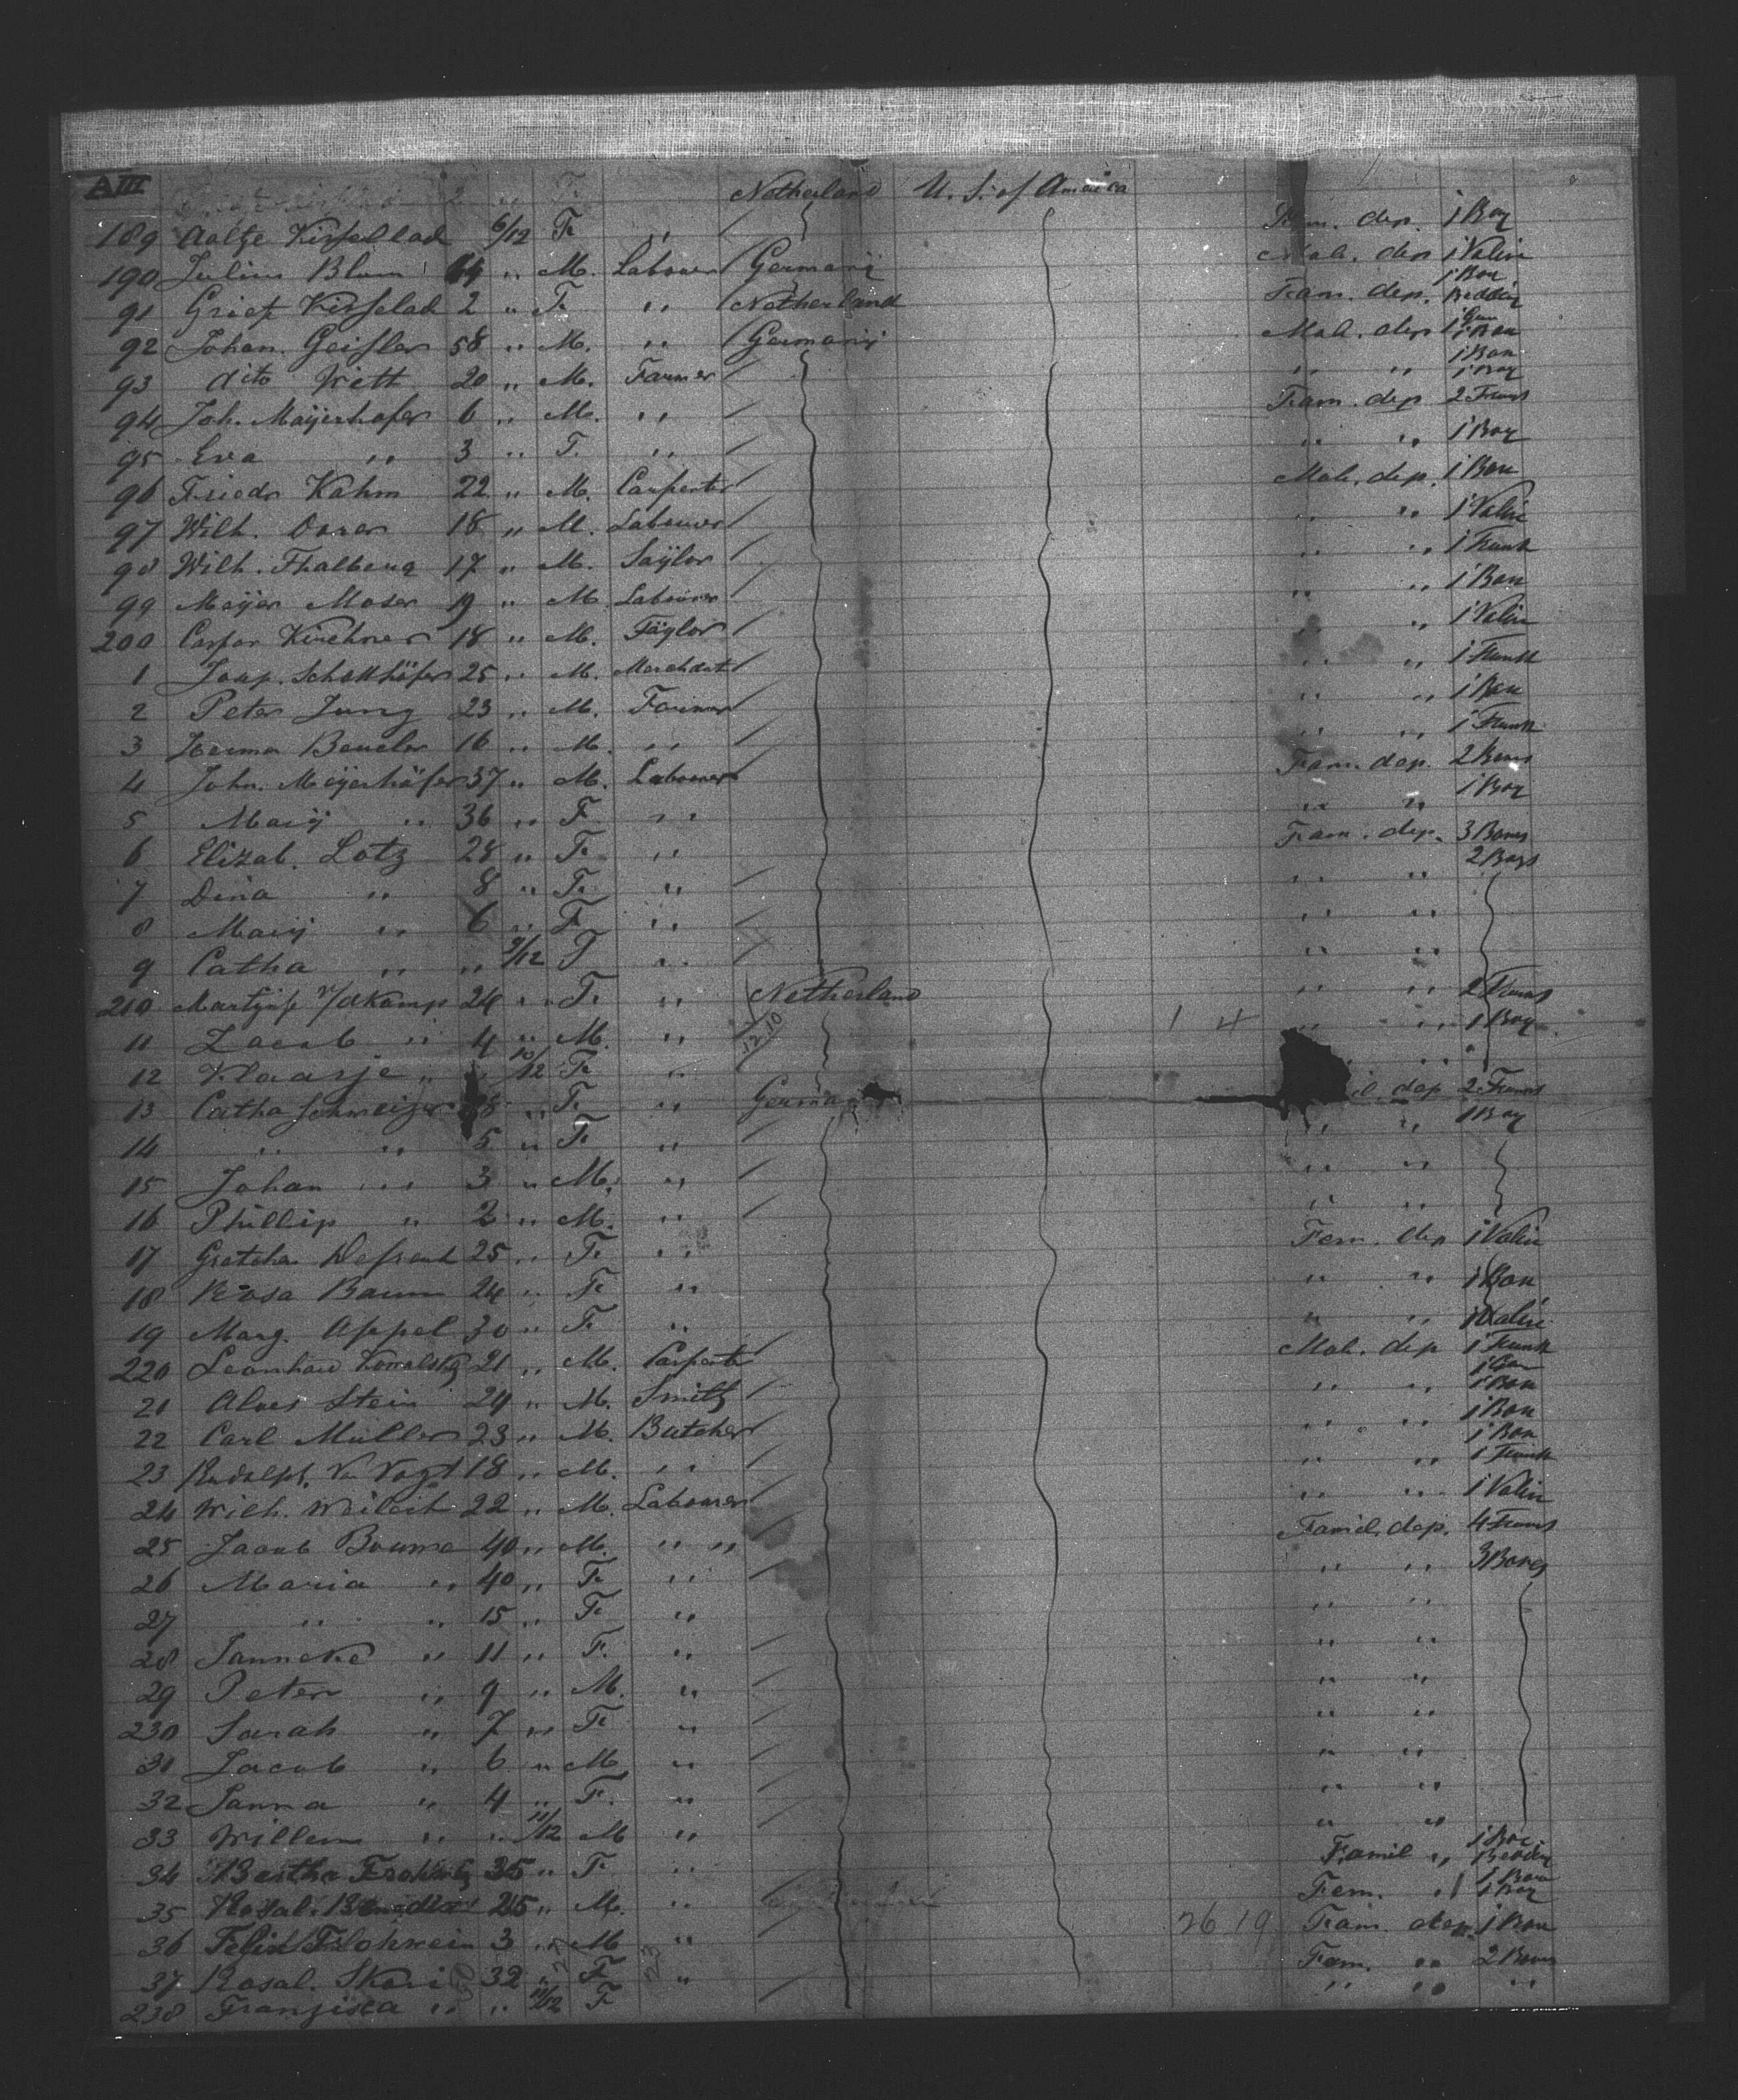 AIII 2 " F. Netherland U. S. of America
189 Aaltje Kisfellad 6/12 F " Fam. dep. 1 Bag
190 Julius Blum 64 " M. Labourer Germanij Mal. dep 1 Valise
91 Grietj Kisfelad 2 " F " Netherland Fam. dep. 1 Box Bedding
92 Johan. Geisler 58 " M. " Germanij Mal. dep 1 Box
93 dito Witt 20 " M. Farmer " " 1 Box 1 Bag
94 Joh. Maijerhofer 6 " M. " Fam. dep 2 Trunks
95 Eva " 3 " F. " " " 1 Bag
96 Friedr Kahm 22 " M. Carpenter Mal. dep. 1 Box
97 Wilh. 18 " M. Labourer " " 1 Valise
98 Wilh. Thalberg 17 " M. Saÿlor " " 1 Trunk
99 Meijer Moser 19 " M. Labourer " " 1 Box
200 Caspar Kirchner 18 " M. Taÿlor " " 1 Valise
1 25 " M. Merchant " " 1 Trunk
2 Peter Jung 23 " M. Farmer " " 1 Box
3 Herman 16 " M. " " " 1 Trunk
4 John. Meijerhöfer 37 " M. Labourer Fam. dep. 2 Boxes
5 Marij " 36 " F " " " 1 Bag
6 Elizab. Lotz 28 " F. " Fam. dep. 3 Boxes 2 Bags
7 Dina " 8 " F. " " "
8 Marij " 6 " F. " " "
9 Catha " " 9/12 F " " "
210 Martijtje v/d Kamp 24 " F. " Netherland " " 2 Trunks
11 Jacob " 4 " M. " 12.10 1 4 " " 1 Bag
12 Klaasje " " 10/12 F. " " "
13 Catha Schmeizer 28 " F. " German dep 2 Trunks
14 " " 5 " F. " " " 1 Bag
15 Johan " 3 " M. " " "
16 Phillip " 2 " M. " " "
17 Gretcha 25 " F. " Fem. dep 1 Valise
18 Rosa Baum 24 " F. " " " 1 Box
19 Marg. Appel 30 " F. " " " 1 Valise
220 Leonhard Kowalsky 21 " M. Carpenter Mal. dep 1 Trunk
21 Stein 29 " M. Smith " " 1 Box
22 Carl Müller 23 " M. Butcher " " 1 Box
23 Rudolph. Vn Vogt 18 " M. " " " 1 Box 1 Trunk
24 Wilh. 22 " M. Labourer " " 1 Valise
25 Jacob Bouma 40 " M. " " Famil. dep. 4 Trunks
26 Maria " 40 " F. " " " 3 Boxes
27 " " 15 " F. " " "
28 Janneke " 11 " F. " " "
29 Peter " 9 " M. " " "
230 Sarah " 7 " F. " " "
31 Jacob " 6 " M. " " "
32 Janna " 4 " F. " " "
33 Willem " " 11/12 M " " "
34 Bertha 35 " F. " Famil " 1 Box Bedding
35 Rosal. 25 " M. " Fem. " 1 Box 1 Bag
36 Felix Frohwein 3 " M " 26 19 Fam. dep. 1 Box
37 Rosal. 32 " F " 23 Fam. " 2 Boxes
238 Franziska " " 11/12 F " " "